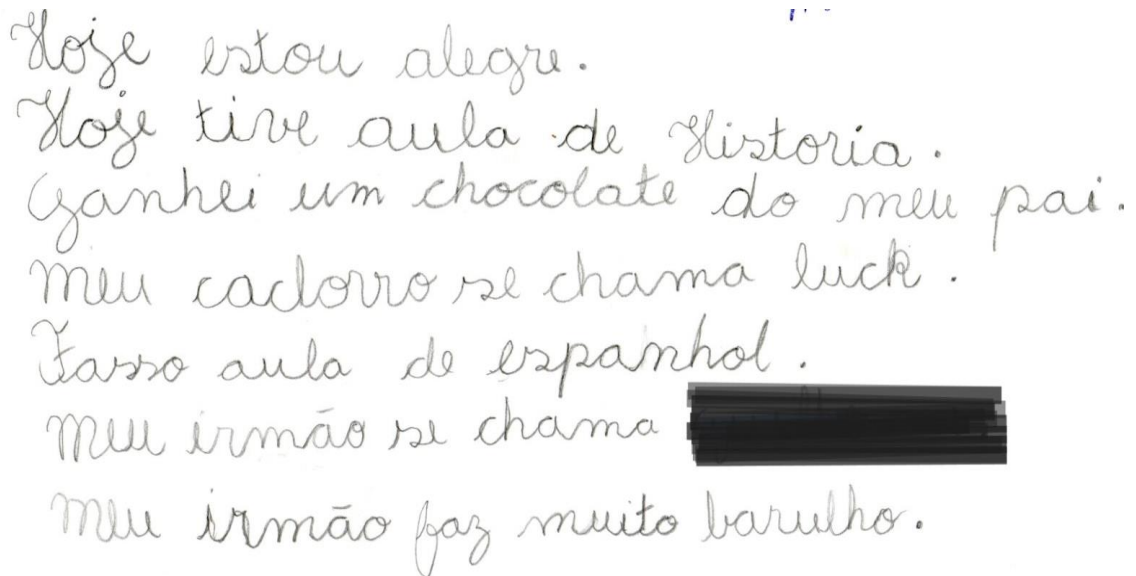 Hoje estou alegre.
Hoje tive aula de Historia.
Ganhei um chocolate do meu pai.
Meu cachorro se chama luck.
Fasso aula de espanhol.
Meu irmão se chama
Meu irmão faz muito barulho.